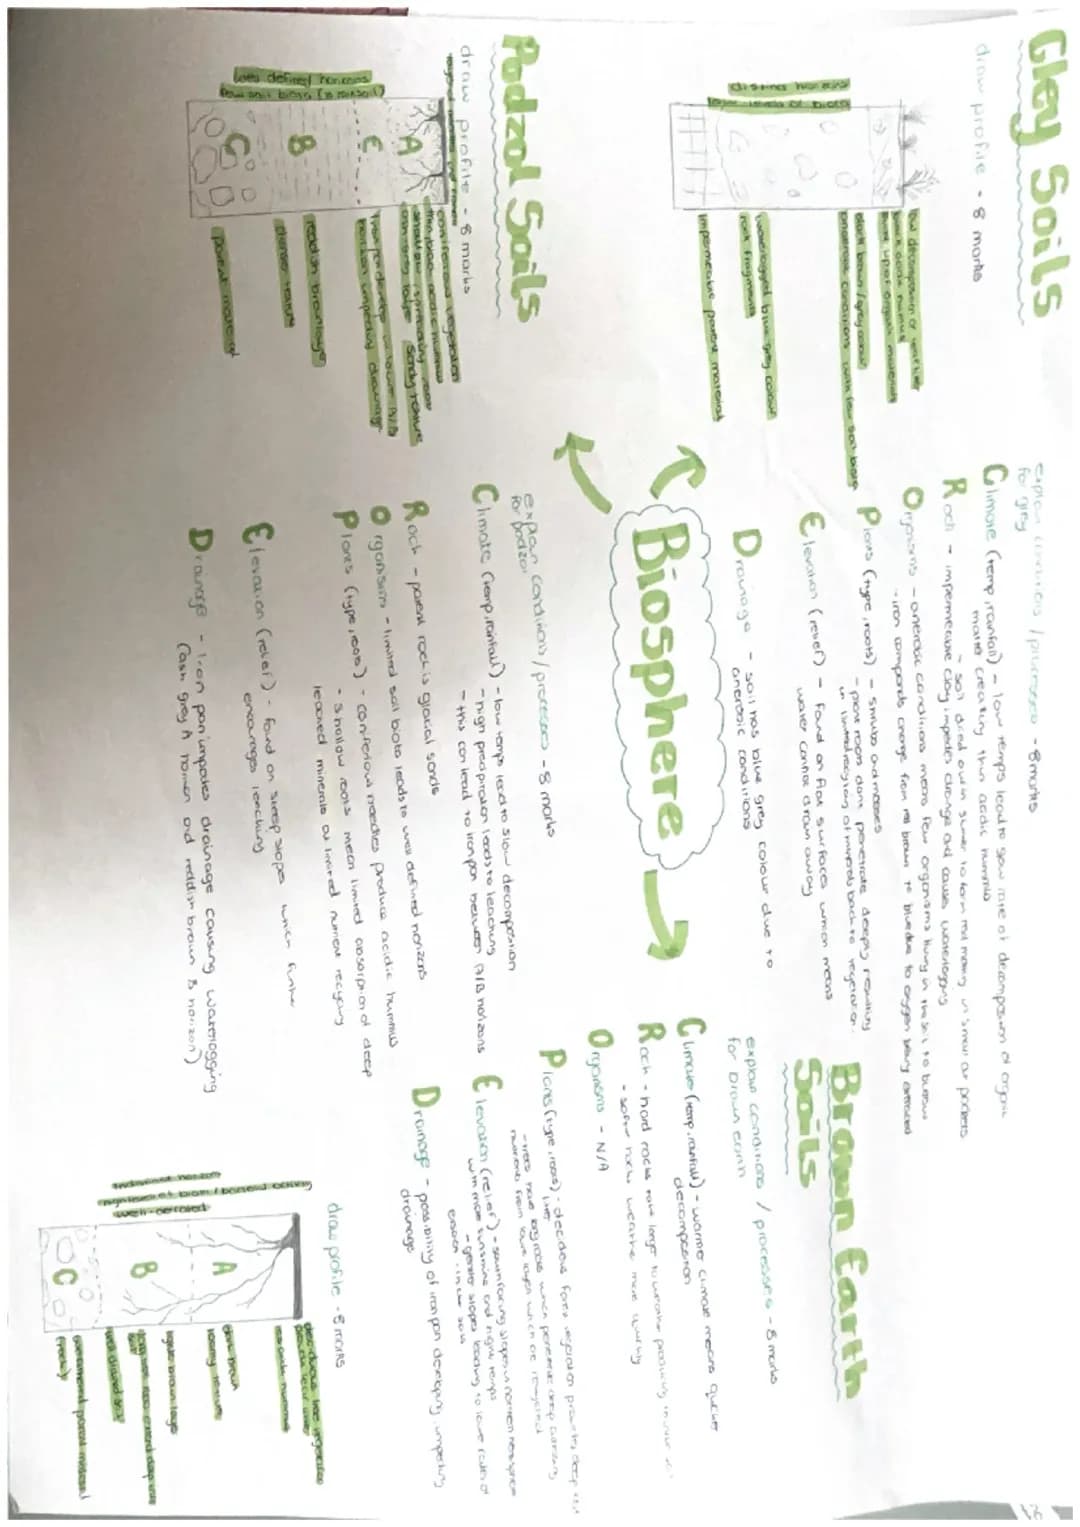 Gley Soils
draw profile - 8 marks
low decomposition of
black acidic hummus
made up of organic materials
black brown/grey colour
anaerobic conditions with low soil biota
waterlogged blue grey colour
rock fragments
impermeable parent material
distinct horizons
low levels of biota
explain conditions / processes - 8 marks
for gley
Climate (temp, rainfall) - low temps lead to slow rate of decomposition of organic
matter creating thin acidic hummus
Rock - impermeable clay impedes drainage and causes waterlogging
Organisms - anerobic conditions means few organisms living in the soil to
- iron compounds change from red brown to blue due to oxygen being
Plants (type, roots) - shrubs and mosses
- plant roots dont penetrate deeply resulting
in limited recycling of minerals back to vegetation.
Elevation (relief) - found on flat surfaces which means
water cannot drain away
Drainage - soil has blue grey colour due to
anerobic conditions
Biosphere
Podzol Soils
draw profile - 8 marks
coniferous vegetation
thin, black acidic hummus
ash-grey layer sandy texture
horizon impeding drainage
reddish brown layer
denser texture
parent material
well defined horizons
low soil biota
A
E
B
C
explain conditions / processes - 8 marks
for podzol
Climate (temp, rainfall) - low temps lead to slow decomposition
- high precipitation leads to leaching
- this can lead to iron pan between A/B horizons
Rock - parent rock is glacial sands
Organisms - limited soil biota leads to well defined horizons
Plants (type, roots) - coniferous needles produce acidic hummus
- shallow roots mean limited absorption of deep
leached minerals and limited nutrient recycling
Elevation (relief) - found on steep slopes which further
encourages leaching
Drainage - Iron pan impedes drainage causing waterlogging
(ash grey A horizon and reddish brown B horizon)
Brown Earth
Soils
explain conditions / processes - 8 marks
for brown earth
Climate (temp, rainfall) - warmer climate means quicker
decomposition
Rock - hard rocks take longer to weather producing thinner
- softer rocks weather more quickly
Organisms - N/A
Plants (type, roots) - decidous forest vegetation provides deep leaf
litter
- trees have big roots which penetrate deep
nutrients from lower layers which are recycled
Elevation (relief) - south facing slopes in northern hemisphere
with more sunshine and higher temps
- gentler slopes leading to lower rates of
erosion in the soils
Drainage - possibility of iron pan developing, impeding
drainage
draw profile - 8 marks
deciduous tree vegetation
dark brown
loamy texture
lighter brown layer
weathered parent material
(rocky)
indistinct horizon
high levels of biota / bacterial activity
well-aerated
A
B
C